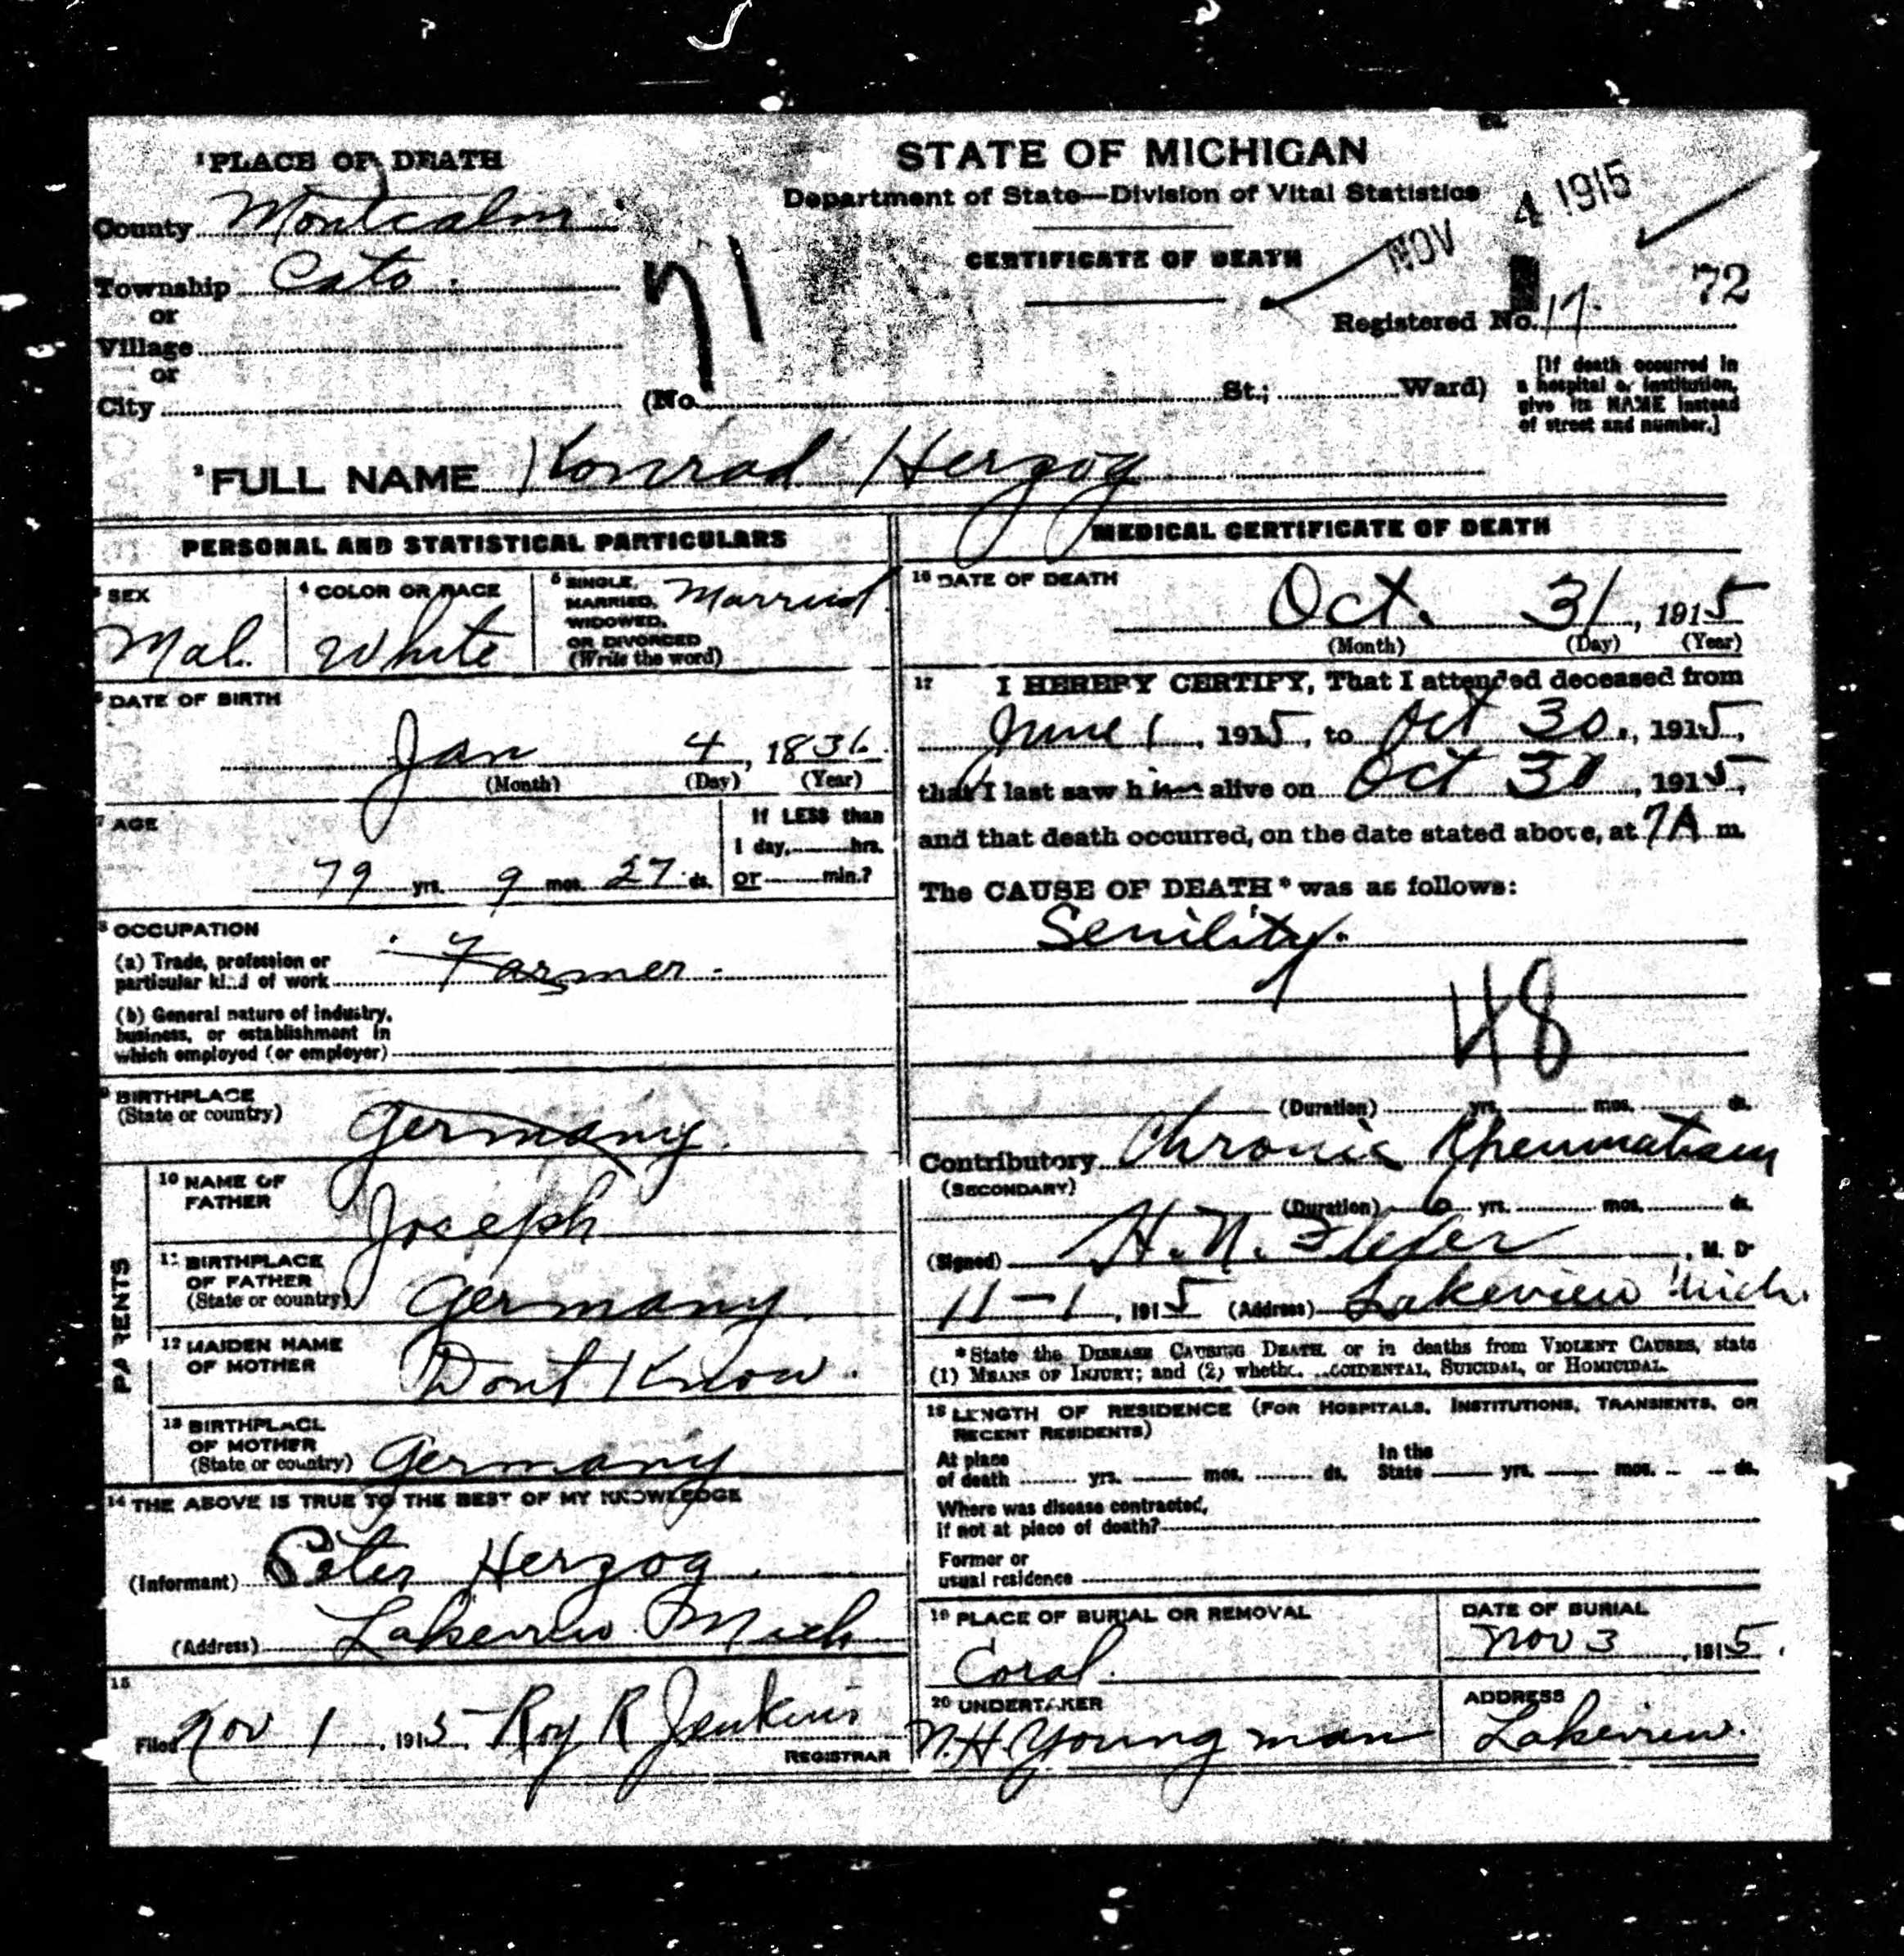 1 PLACE OF DEATH
County Montcalm
Township Cato
or
Village
or
City
STATE OF MICHIGAN
Department of State—Division of Vital Statistics
CERTIFICATE OF DEATH
NOV 4 1915
71
72
Registered No. 17.
(No. St.; Ward)
[If death occurred in
a hospital or institution,
give its NAME instead
of street and number.]
2 FULL NAME Konrad Herzog
PERSONAL AND STATISTICAL PARTICULARS
3 SEX
Mal.
4 COLOR OR RACE
White
5 SINGLE,
MARRIED,
WIDOWED,
OR DIVORCED
(Write the word)
Married
6 DATE OF BIRTH
Jan 4, 1836.
(Month) (Day) (Year)
7 AGE
79 yrs. 9 mos. 27 ds.
If LESS than
1 day, hrs.
or min.?
8 OCCUPATION
(a) Trade, profession or
particular kind of work Farmer.
(b) General nature of industry,
business, or establishment in
which employed (or employer)
9 BIRTHPLACE
(State or country)
Germany.
PARENTS
10 NAME OF
FATHER
Joseph
11 BIRTHPLACE
OF FATHER
(State or country)
Germany
12 MAIDEN NAME
OF MOTHER
Dont Know.
13 BIRTHPLACE
OF MOTHER
(State or country)
Germany
14 THE ABOVE IS TRUE TO THE BEST OF MY KNOWLEDGE
(Informant) Peter Herzog.
(Address) Lakeview Mich
15
Filed Nov 1, 1915 Roy R Jenkins
REGISTRAR
MEDICAL CERTIFICATE OF DEATH
16 DATE OF DEATH
Oct. 31, 1915
(Month) (Day) (Year)
17 I HEREBY CERTIFY, That I attended deceased from
June 1, 1915, to Oct 30., 1915,
that I last saw him alive on Oct 30, 1915,
and that death occurred, on the date stated above, at 7A m.
The CAUSE OF DEATH* was as follows:
Senility.
48
(Duration) yrs. mos. ds.
Contributory Chronic Rheumatism
(SECONDARY)
(Duration) 6 yrs. mos. ds.
(Signed) H. N. , M. D.
11-1, 1915 (Address) Lakeview Mich.
*State the DISEASE CAUSING DEATH, or in deaths from VIOLENT CAUSES, state
(1) MEANS OF INJURY; and (2) whether ACCIDENTAL, SUICIDAL, or HOMICIDAL.
18 LENGTH OF RESIDENCE (FOR HOSPITALS, INSTITUTIONS, TRANSIENTS, OR
RECENT RESIDENTS)
At place
of death yrs. mos. ds.
In the
State yrs. mos. ds.
Where was disease contracted,
if not at place of death?
Former or
usual residence
19 PLACE OF BURIAL OR REMOVAL
Coral.
DATE OF BURIAL
Nov 3, 1915.
20 UNDERTAKER
N.H. Youngman
ADDRESS
Lakeview.